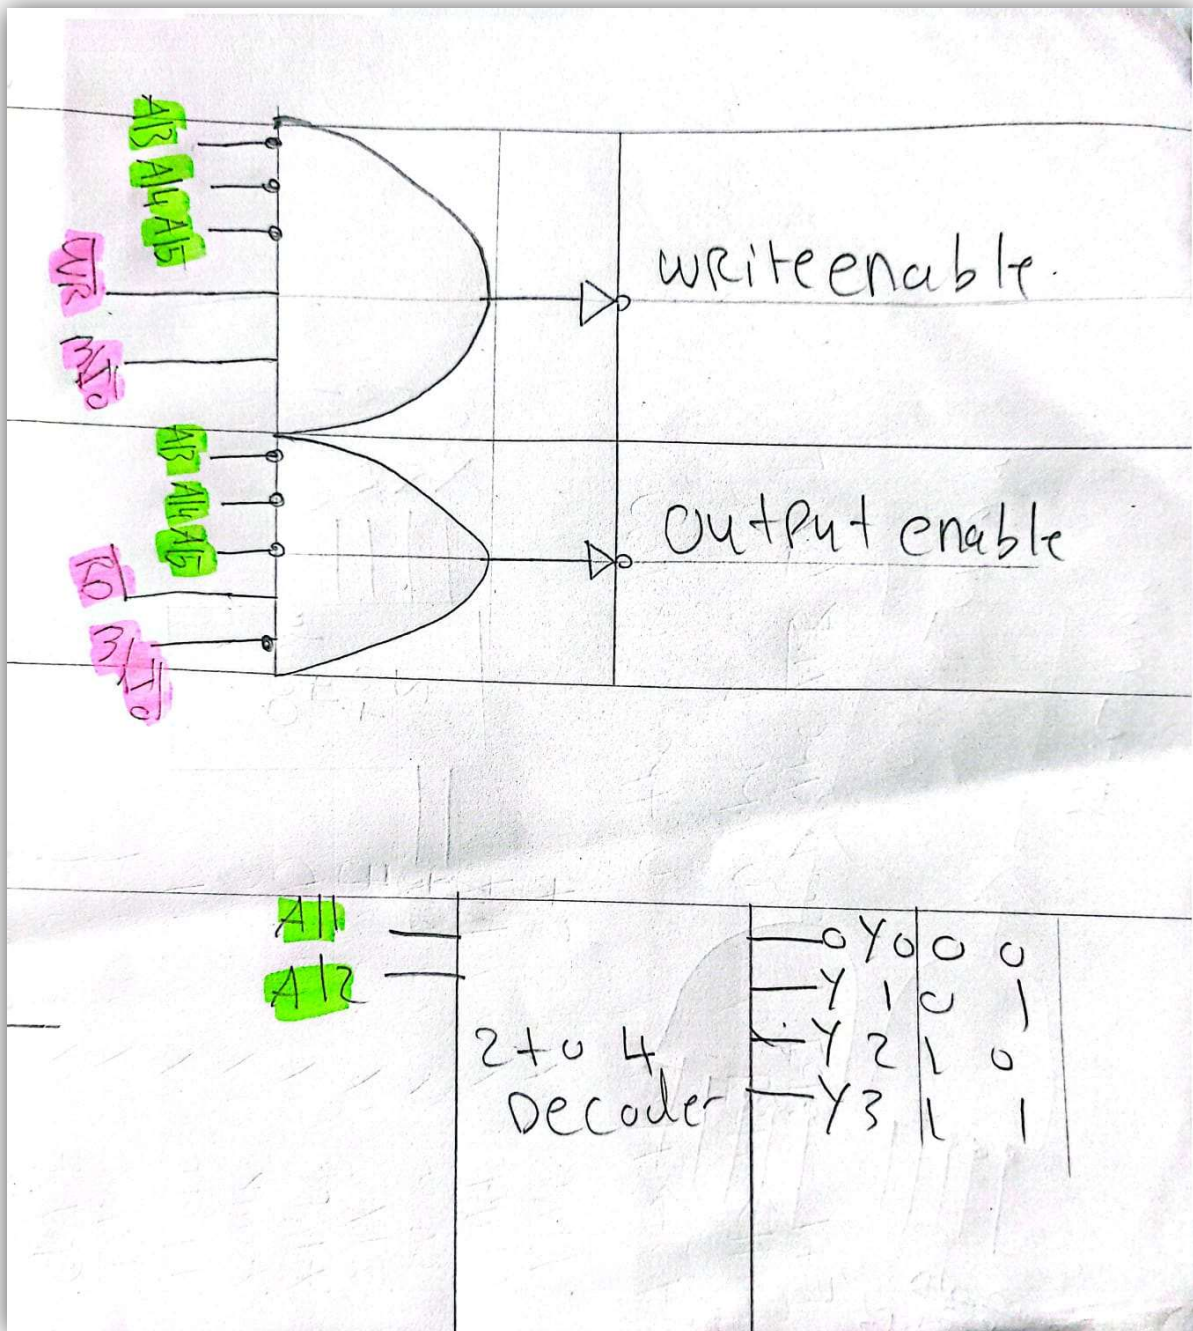 A13
A14
A15
WR
3/IO
write enable.
A13
A14
A15
RD
3/IO
output enable
A11
A12
2 to 4
Decoder
Y0 0 0
Y1 0 1
Y2 1 0
Y3 1 1